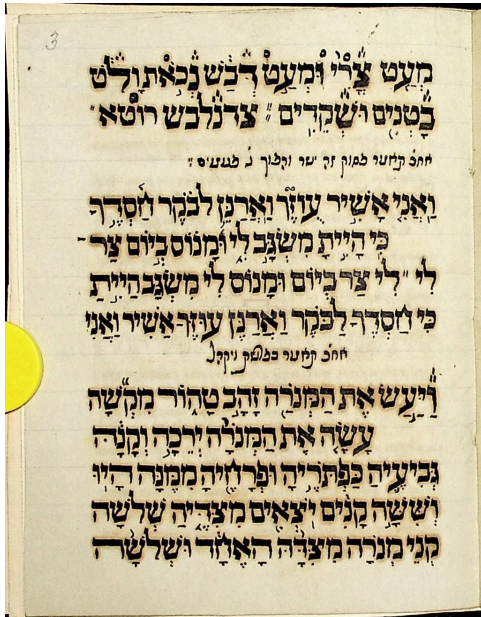 3
מְעַט צֳרִי וּמְעַט דְּבַשׁ נְכֹאת וָלֹט
בָּטְנִים וּשְׁקֵדִים ״ צדנלבש רוטא״
וַאֲנִי אָשִׁיר עֻוזֶּךָ וַאֲרַנֵּן לַבֹּקֶר חַסְדֶּךָ
כִּי הָיִיתָ מִשְׂגָּב לִי וּמָנוֹס בְּיוֹם צַר־
לִי ״ לִי צַר בְּיוֹם וּמָנוֹס לִי מִשְׂגָּב הָיִיתָ
כִּי חַסְדֶּךָ לַבֹּקֶר וַאֲרַנֵּן עוּזֶּךָ אָשִׁיר וַאֲנִי
וַיַּעַשׂ אֶת הַמְּנֹרָה זָהָב טָהוֹר מִקְשָׁה
עָשָׂה אֶת הַמְּנֹרָה יְרֵכָהּ וְקָנָהּ
גְּבִיעֶיהָ כַּפְתֹּרֶיהָ וּפְרָחֶיהָ מִמֶּנָּה הָיוּ
וְשִׁשָּׁה קָנִים יֹצְאִים מִצִּדֶּיהָ שְׁלֹשָׁה
קְנֵי מְנֹרָה מִצִּדָּהּ הָאֶחָד וּשְׁלֹשָׁה